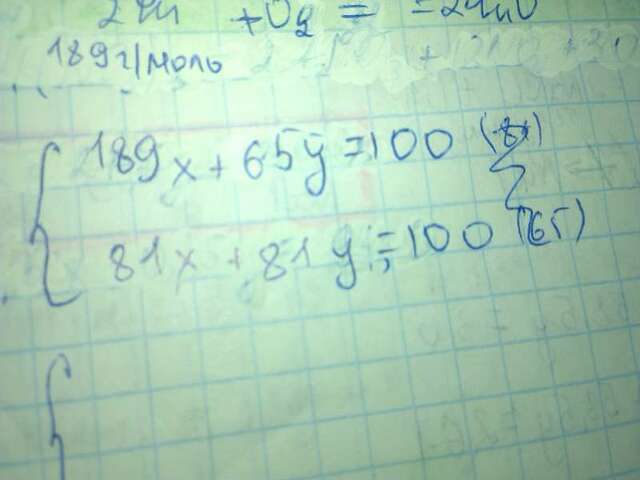 2Zn + O2 = 2ZnO
189 г/моль
189x + 65y = 100 (81)
81x + 81y = 100 (65)